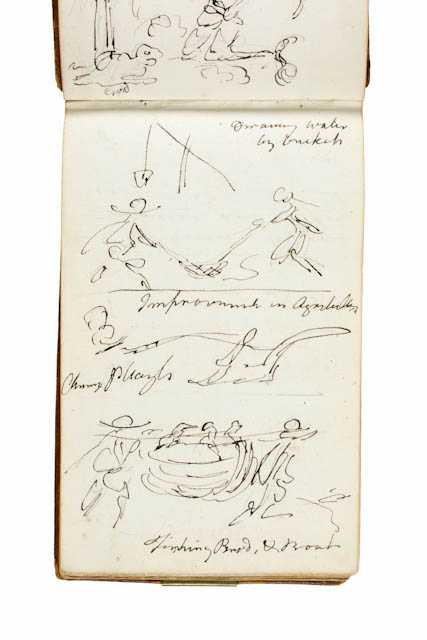 Drawing water
by buckets
Improvements in Agricultur
Plough
Fishing Bird, & Boat